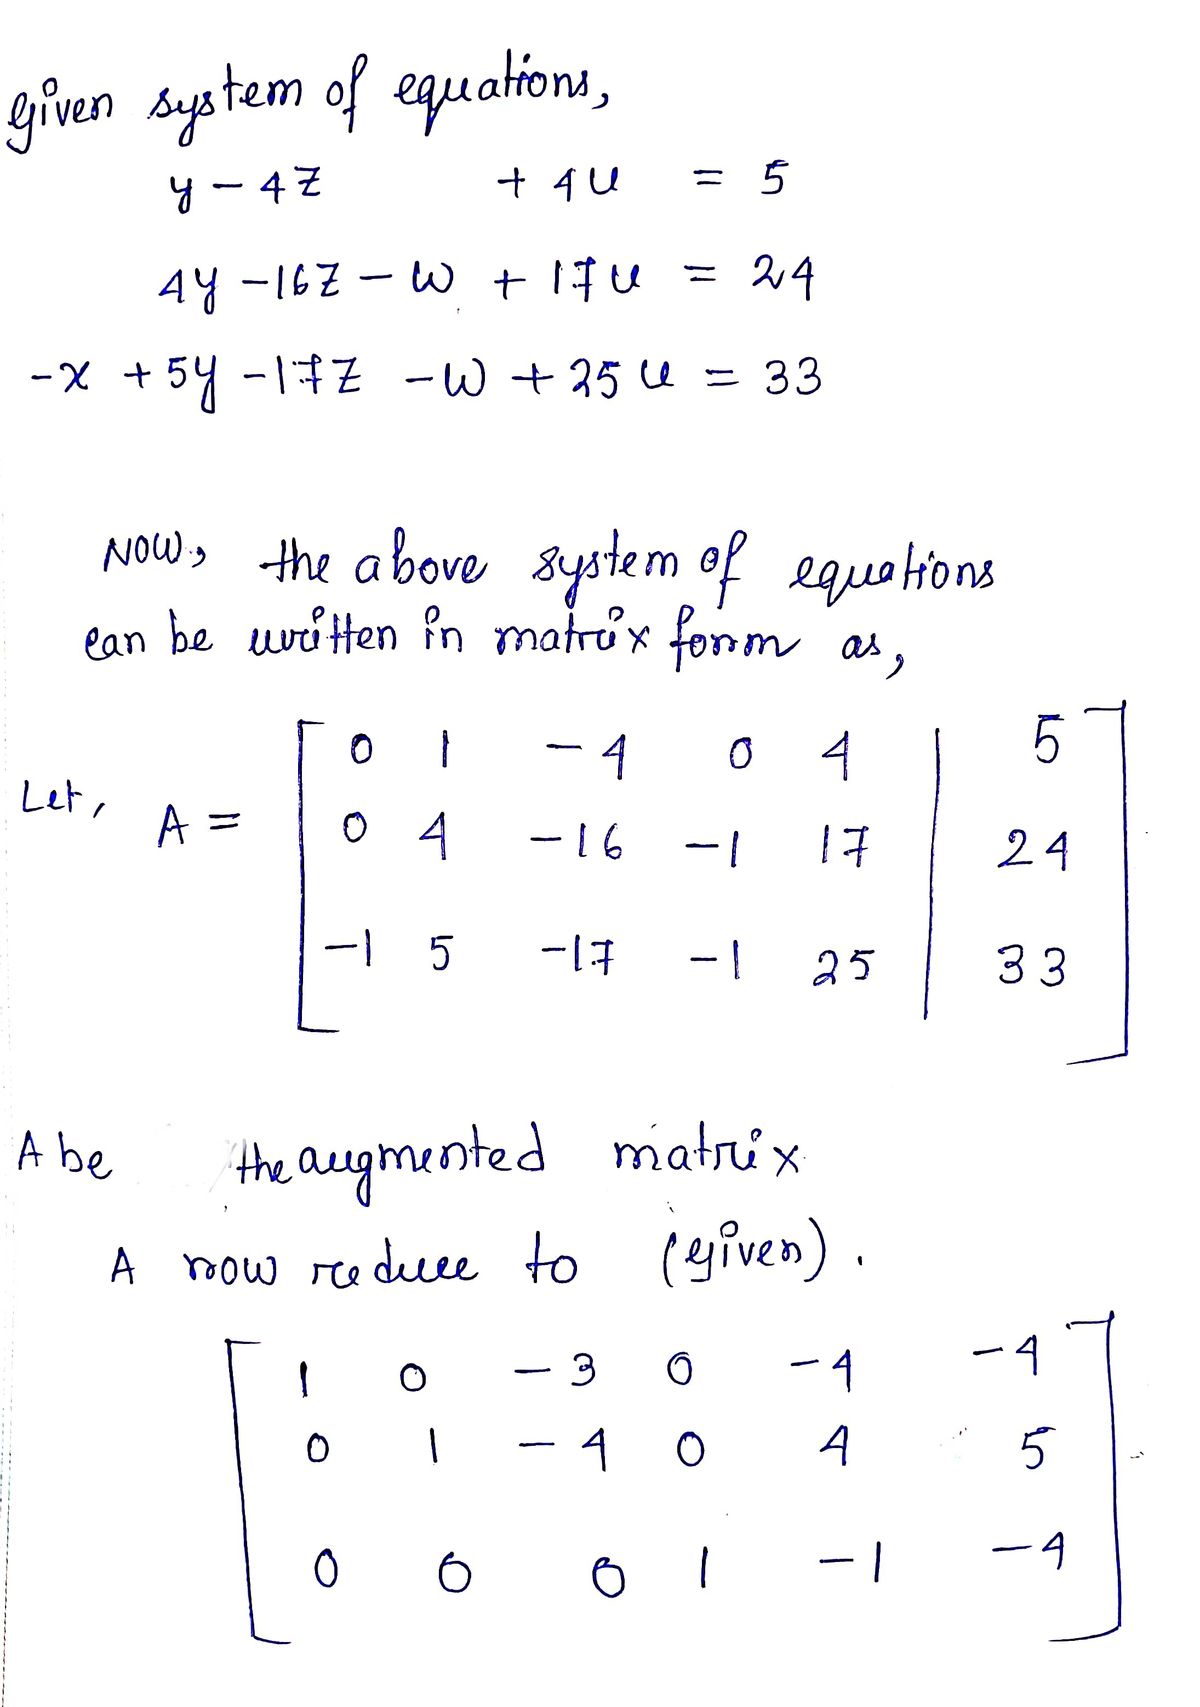 given system of equations,
y - 4z + 4u = 5
4y - 16z - w + 17u = 24
-x + 5y - 17z - w + 25u = 33
Now, the above system of equations
can be written in matrix form as,
0 1 -4 0 4 | 5
Let, A = 0 4 -16 -1 17 | 24
-1 5 -17 -1 25 | 33
A be the augmented matrix
A now reduce to (given).
1 0 -3 0 -4 -4
0 1 -4 0 4 5
0 0 0 1 -1 -4